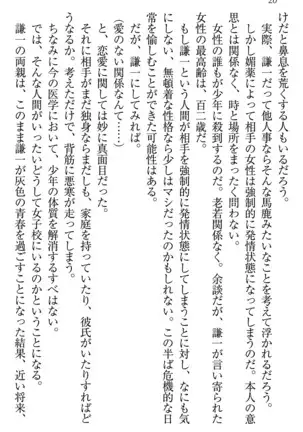 けだと鼻息を荒くする人もいるだろう。
実際、謙一だって他人事ならそんな馬鹿みたいなことを考えて浮かれるだろう。
しかし媚薬によって相手の女性は強制的に発情状態になってしまう。本人の意
思とは関係なく、時と場所をまったく問わない。
女性の誰もが少年に殺到するのだ。老若関係なく。余談だが、謙一が言い寄られた
女性の最高齢は、百二歳だ。
もし謙一という人間が相手を強制的に発情状態にしてしまうことに対し、なにも気
にしない、無頓着な性格なら少しはマシだったかもしれない。この半ば危機的な日
常を愉しむことができた可能性はある。
だが、謙一にしてみれば、
（愛のない関係なんて……）
と、恋愛に関しては妙に真面目だった。
それに相手がまだ独身ならまだしも、家庭を持っていたり、彼氏がいたりすればど
うなるか。考えただけで、背筋に悪寒が走ってしまう。
ちなみに今の医学において、少年の体質を解消するすべはない。
では、そんな人間がいったいどうして女子校にいるのかということになる。
謙一の両親は、このまま謙一が灰色の青春を過ごすことになった結果、近い将来、